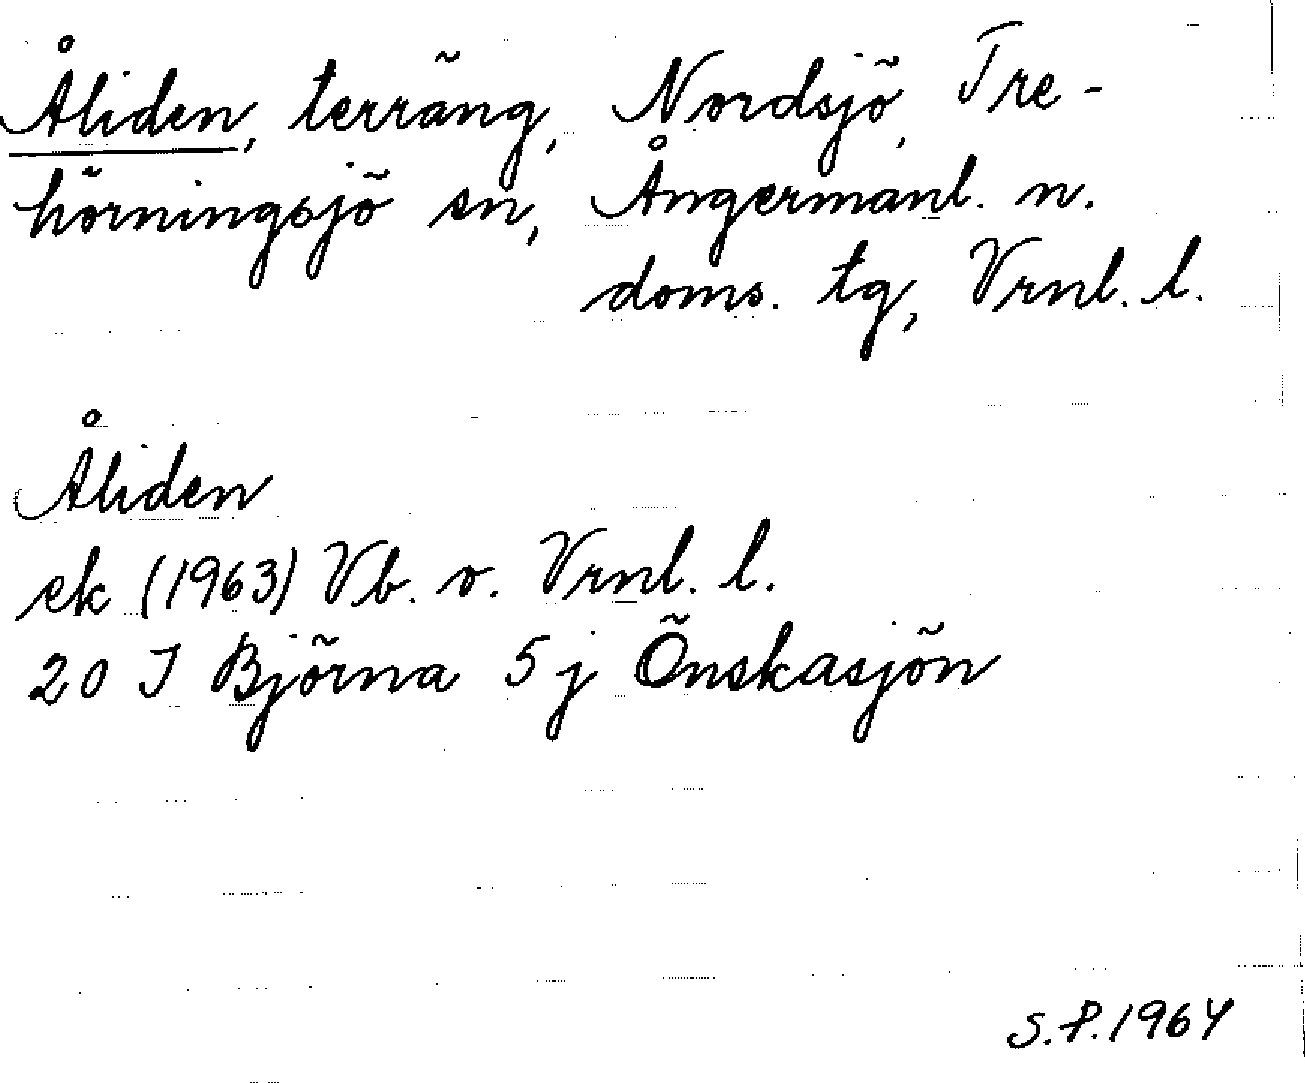 Åliden, terräng, Nordsjö, Tre-
hörningsjö sn, Ångermanl. n.
doms. tg, Vrnl. l.
Åliden
ek (1963) Vb. o. Vrnl. l.
20 I Björna 5 j Önskasjön
S.P. 1964